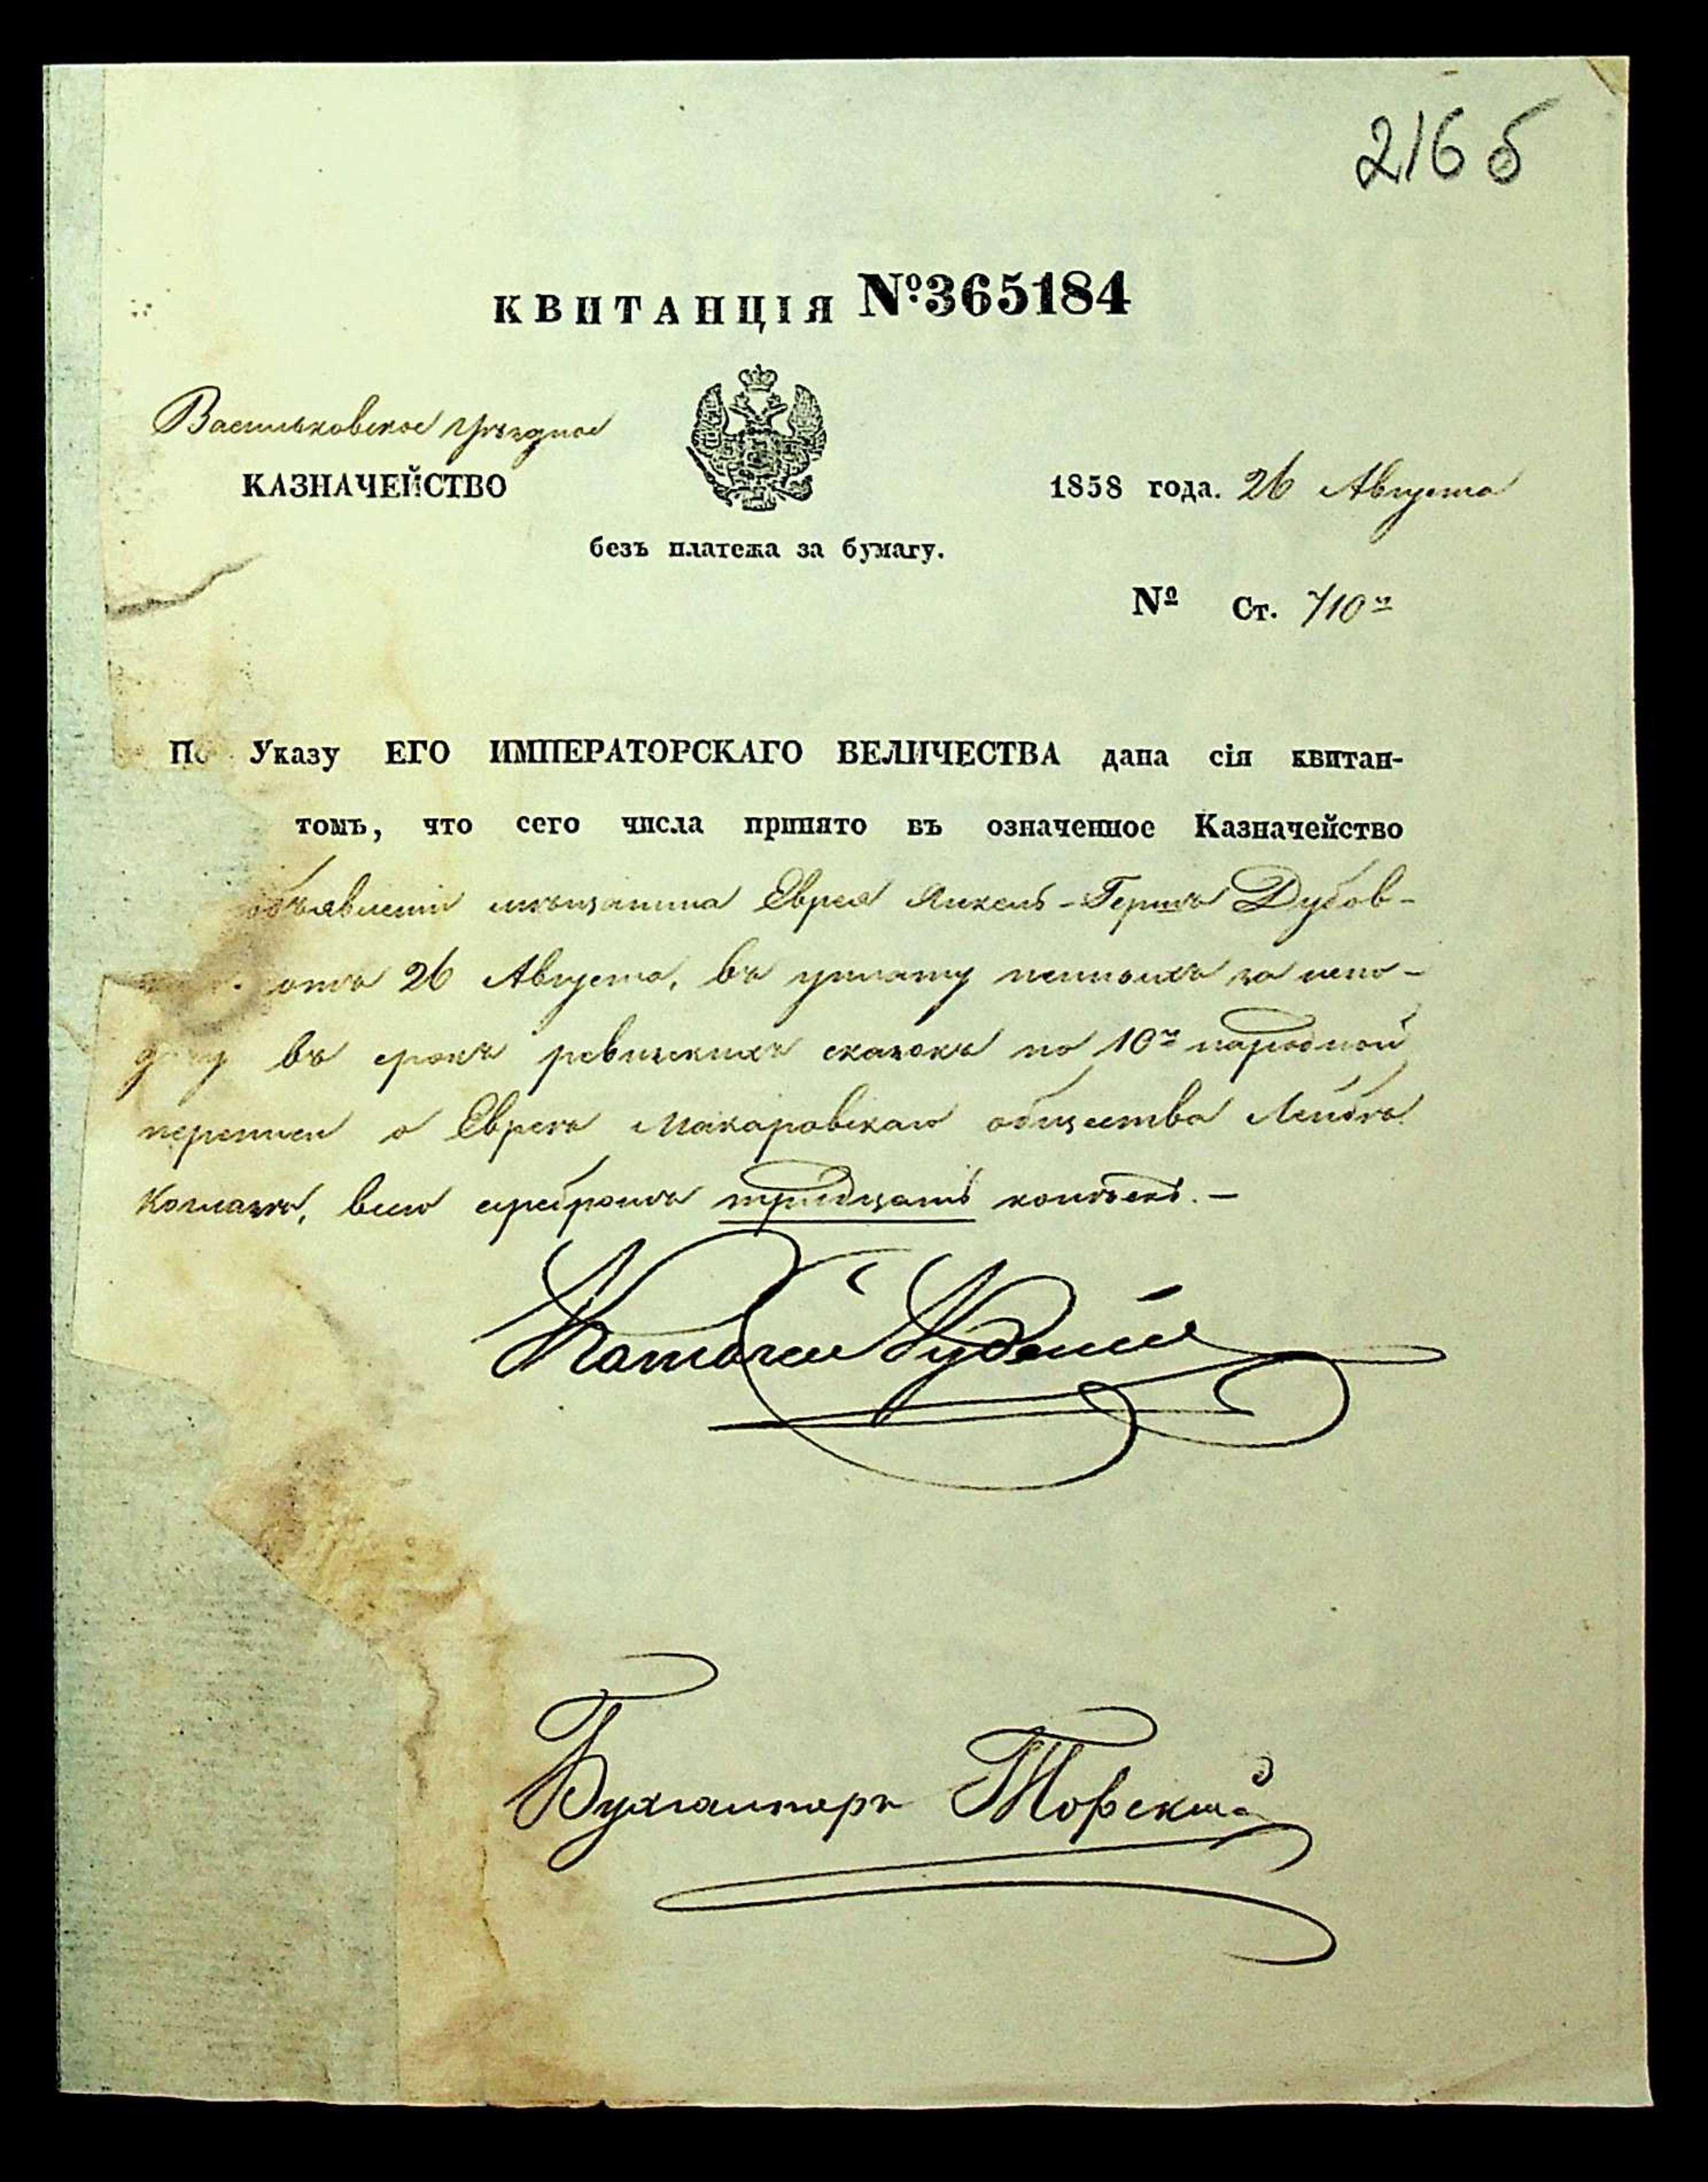 216 б
КВИТАНЦІЯ №365184
Васильковское Уѣздное
КАЗНАЧЕЙСТВО
1858 года. 26 Августа
безъ платежа за бумагу.
№ Ст. 710
По Указу ЕГО ИМПЕРАТОРСКАГО ВЕЛИЧЕСТВА дана сія квитан-
томъ, что сего числа принято въ означенное Казначейство
объявленіи мѣщанина Еврея Янкель-Герша Дубов-
отъ 26 Августа, въ уплату пенныхъ за непо-
дачу въ срокъ ревизскихъ сказокъ по 10й народной
переписи о Евреѣ Макаровскаго общества Лейбѣ
всего серебромъ тридцать копѣекъ.—
Бухгалтеръ Торскій